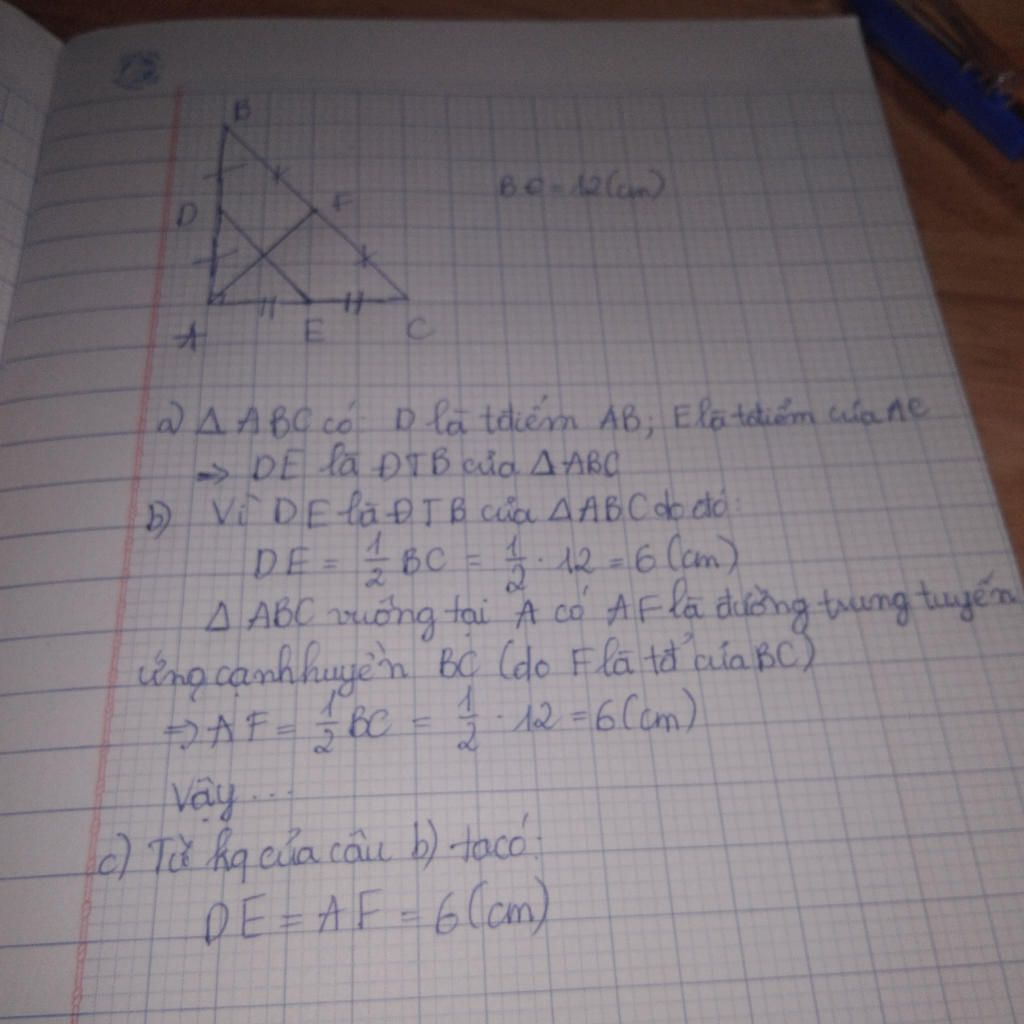 B
BC = 12(cm)
D
F
A
E
C
a) Δ ABC có D là tđiểm AB; E là tđiểm của AC
→ DE là ĐTB của Δ ABC
b) Vì DE là ĐTB của ΔABC do đó:
DE = 1/2 BC = 1/2 · 12 = 6 (cm)
Δ ABC vuông tại A có AF là đường trung tuyến
ứng cạnh huyền BC (do F là tđ của BC)
⇒ AF = 1/2 BC = 1/2 · 12 = 6 (cm)
Vậy ...
c) Từ kq của câu b) ta có:
DE = AF = 6 (cm)